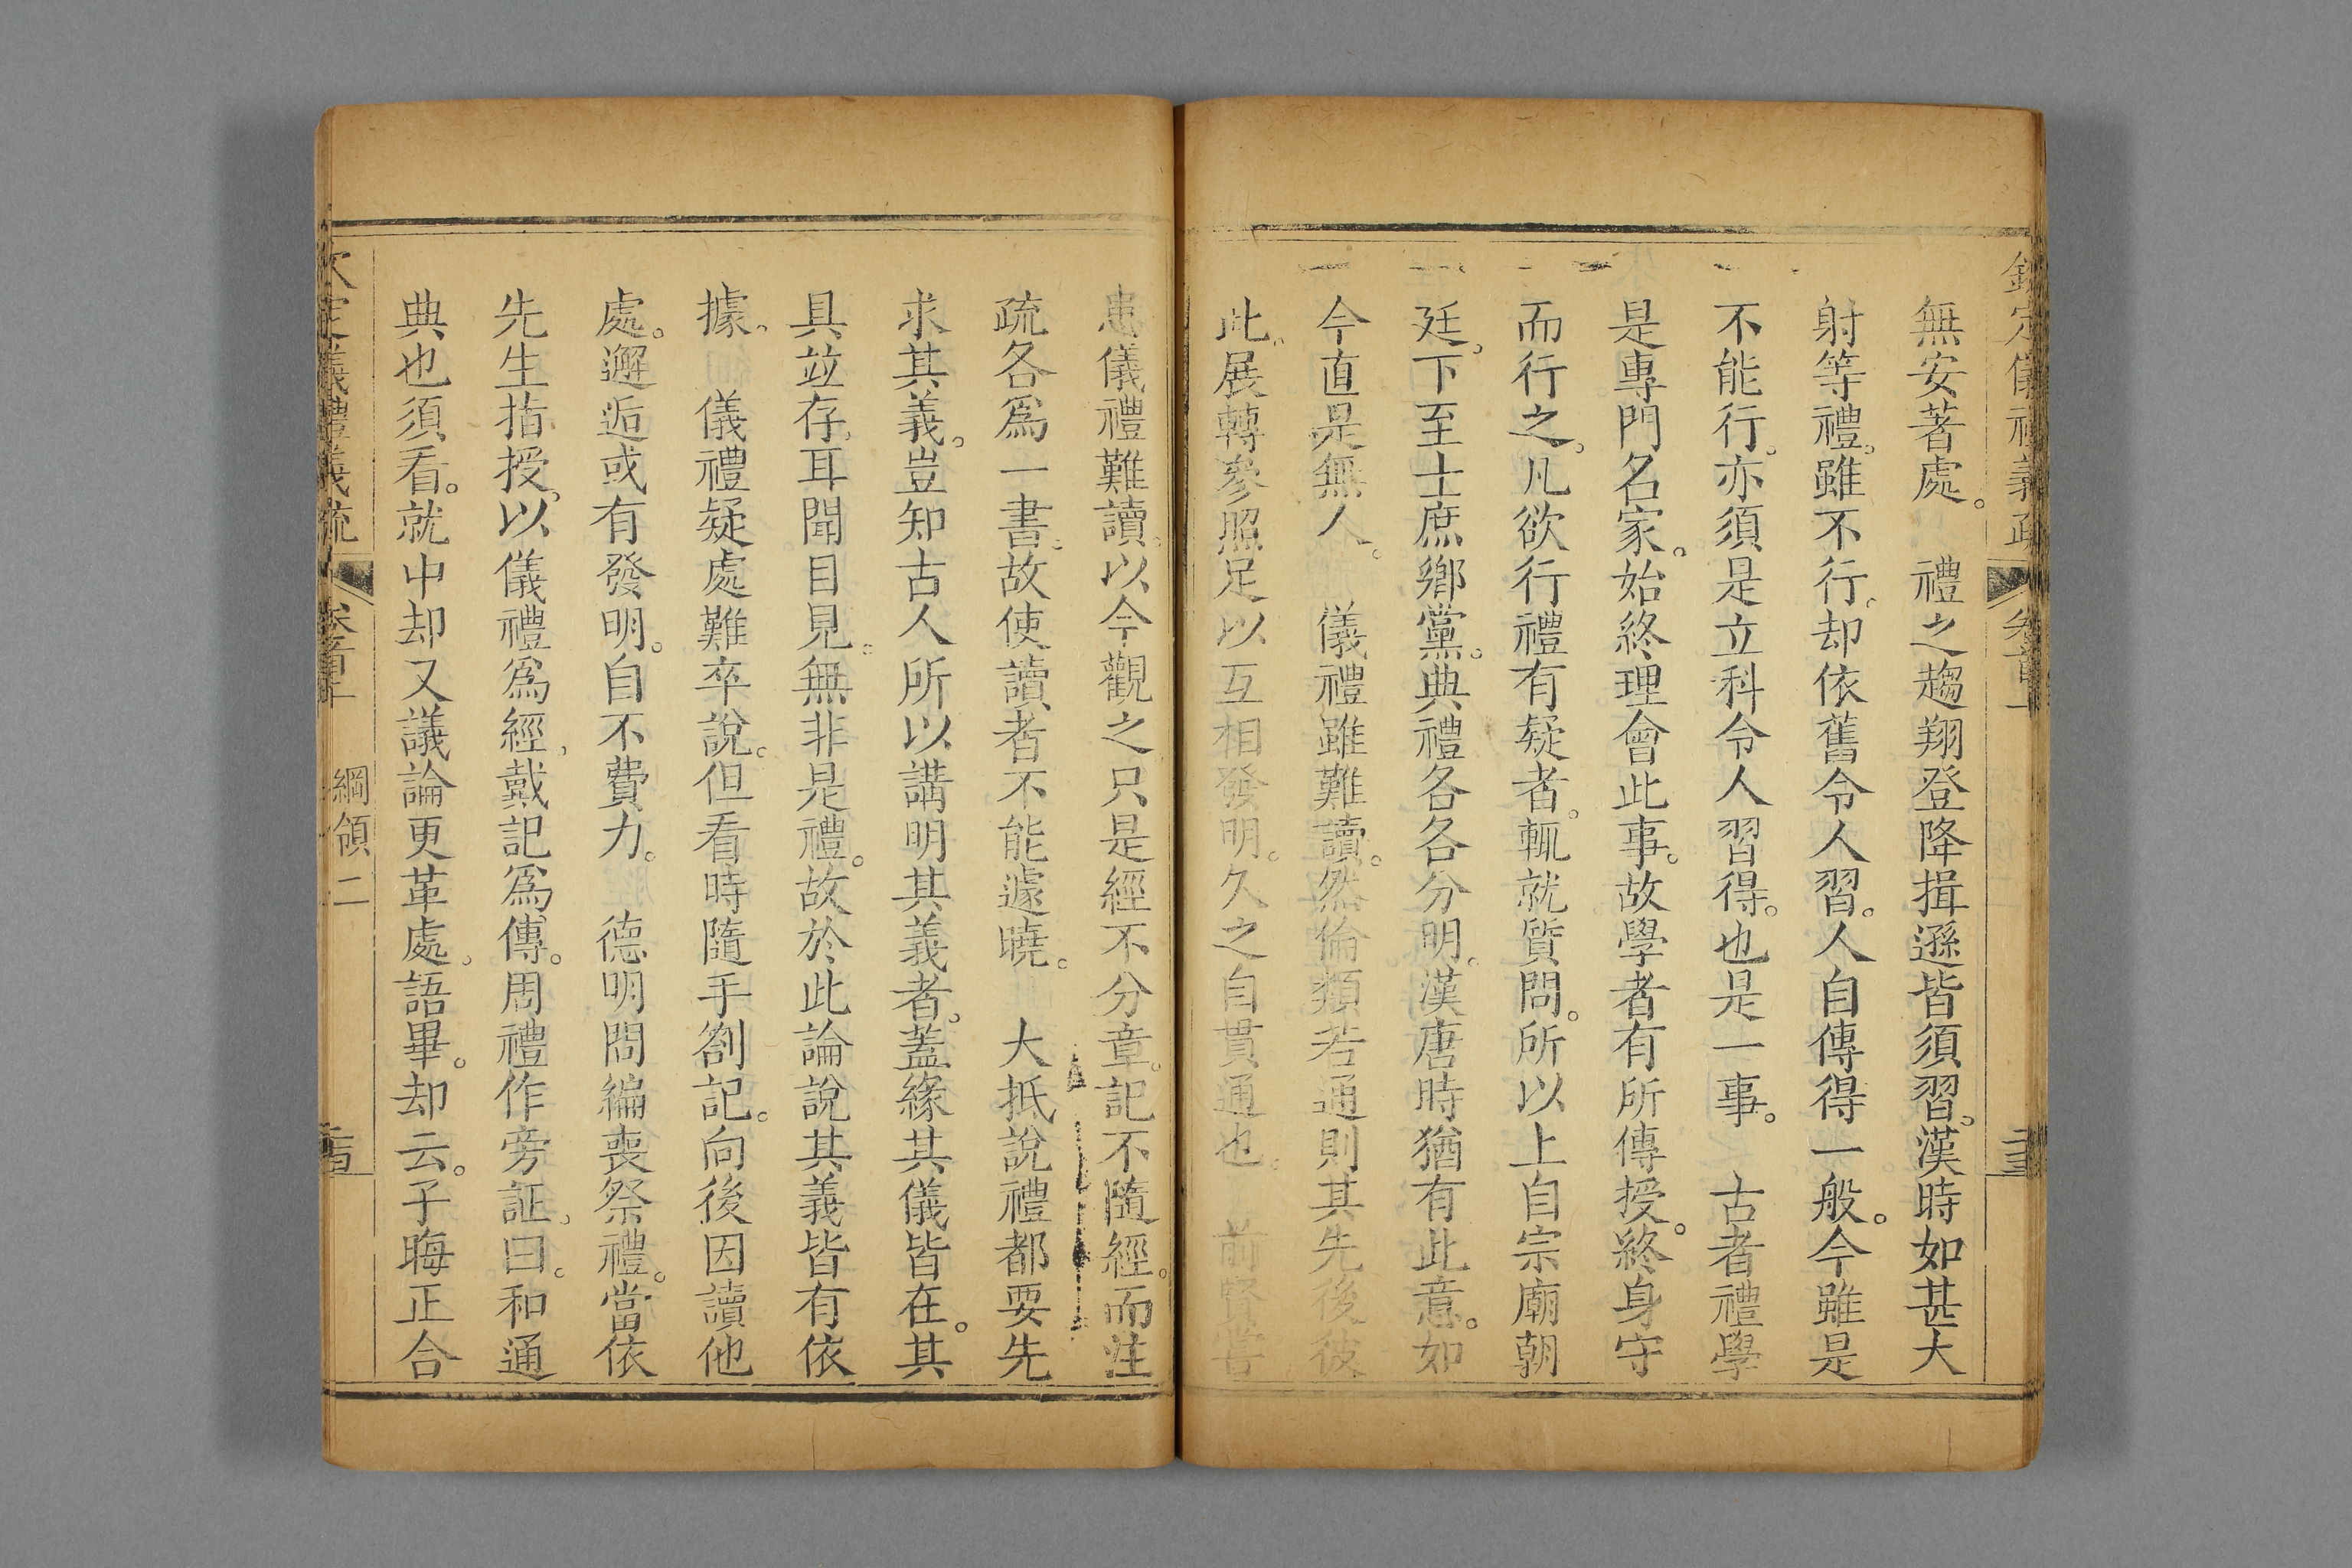 欽定儀禮義疏 卷首上
無安著處。 禮之趨翔登降揖遜皆須習。漢時如甚大
射等禮。雖不行。却依舊令人習。人自傳得一般。今雖是
不能行。亦須是立科令人習得。也是一事。 古者禮學
是專門名家。始終理會此事。故學者有所傳授。終身守
而行之。凡欲行禮有疑者。輒就質問。所以上自宗廟朝
廷。下至士庶鄉黨。典禮各各分明。漢唐時猶有此意。如
今直是無人。 儀禮雖難讀。然倫類若通。則其先後彼
此。展轉參照。足以互相發明。久之自貫通也。 前賢嘗
患儀禮難讀。以今觀之。只是經不分章。記不隨經。而注
疏各爲一書。故使讀者不能遽曉。 大抵說禮都要先
求其義。豈知古人所以講明其義者。蓋緣其儀皆在。其
具竝存。耳聞目見。無非是禮。故於此論說其義皆有依
據。 儀禮疑處難卒說。但看時隨手劄記。向後因讀他
處。邂逅或有發明。自不費力。 德明問編喪祭禮。當依
先生指授。以儀禮爲經。戴記爲傳。周禮作旁証。曰。和通
典也須看。就中却又議論更革處。語畢。却云。子晦正合
欽定儀禮義疏 卷首上 綱領二